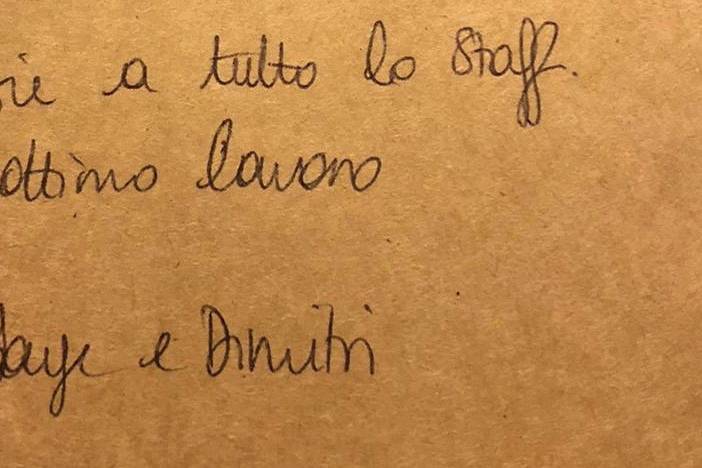 zie a tutto lo staff.
ottimo lavoro
e Dimitri